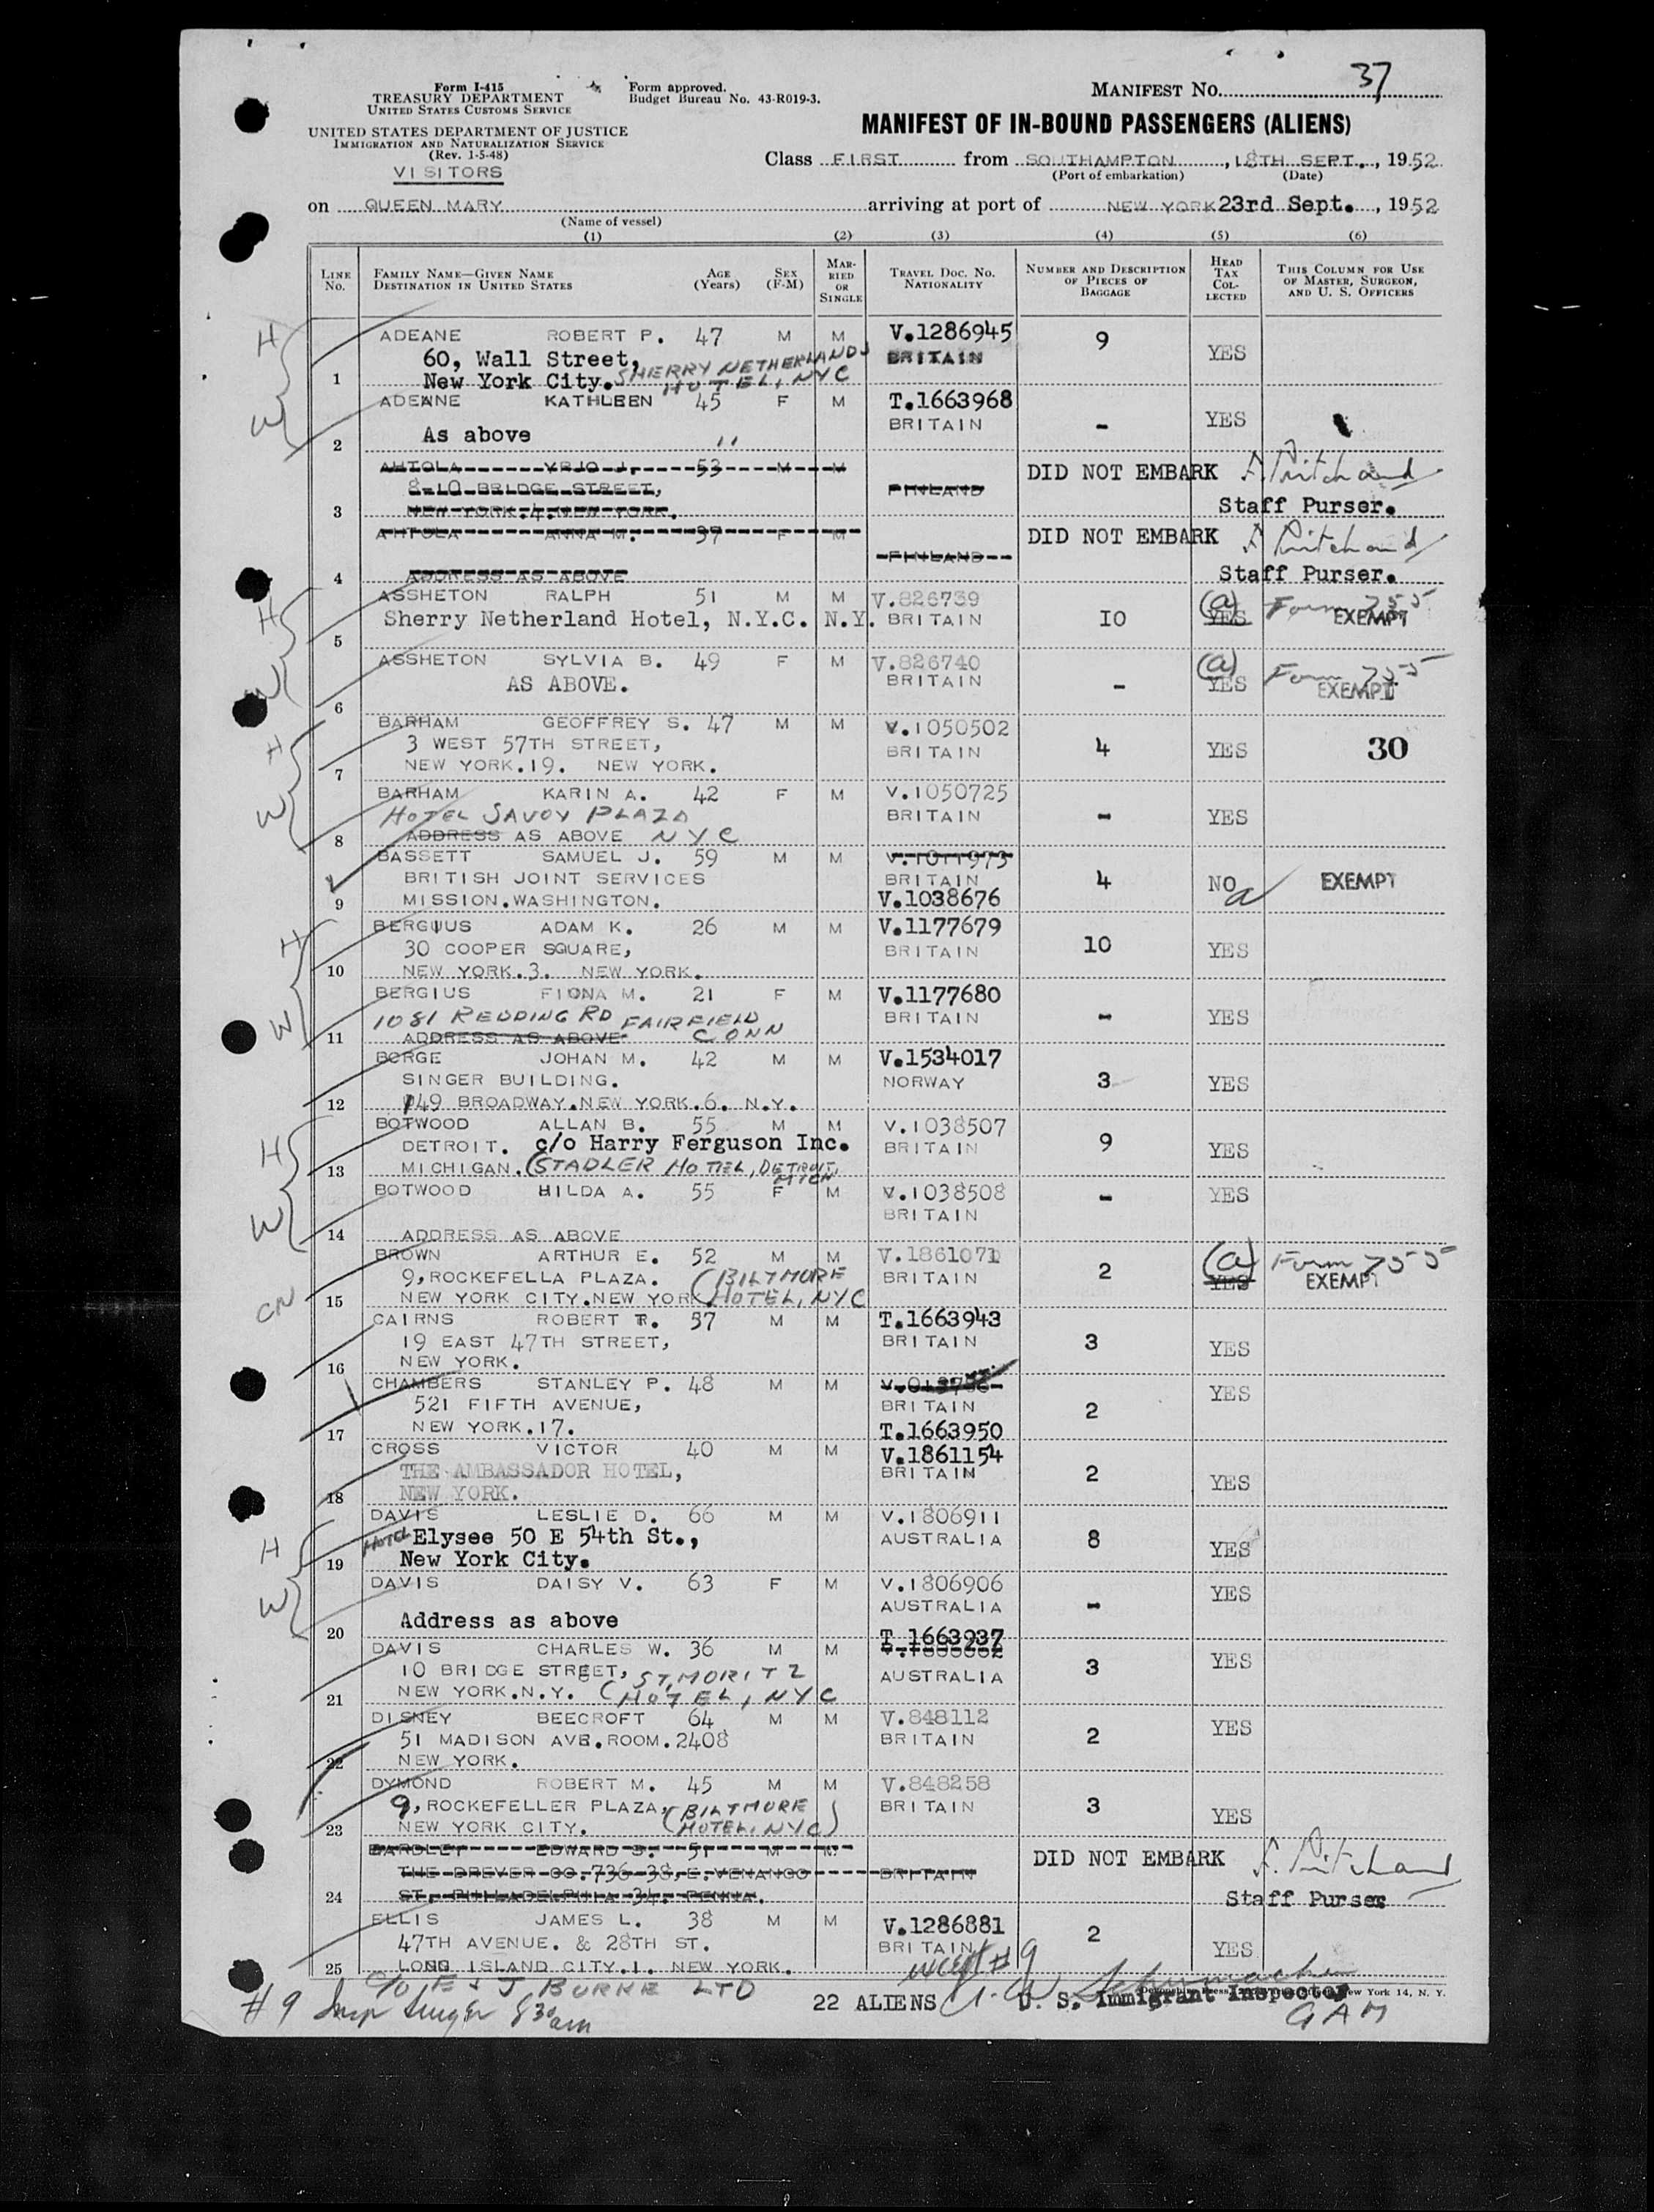 Form I-415
TREASURY DEPARTMENT
UNITED STATES CUSTOMS SERVICE
UNITED STATES DEPARTMENT OF JUSTICE
IMMIGRATION AND NATURALIZATION SERVICE
(Rev. 1-5-48)
VISITORS
Form approved.
Budget Bureau No. 43-R019-3.
MANIFEST NO. 37
MANIFEST OF IN-BOUND PASSENGERS (ALIENS)
Class FIRST from SOUTHAMPTON, 18TH SEPT., 1952
(Port of embarkation) (Date)
on QUEEN MARY arriving at port of NEW YORK 23rd Sept., 1952
(Name of vessel)
(1) (2) (3) (4) (5) (6)
LINE NO. FAMILY NAME—GIVEN NAME DESTINATION IN UNITED STATES AGE (Years) SEX (F-M) MARRIED OR SINGLE TRAVEL DOC. NO. NATIONALITY NUMBER AND DESCRIPTION OF PIECES OF BAGGAGE HEAD TAX COLLECTED THIS COLUMN FOR USE OF MASTER, SURGEON, AND U. S. OFFICERS
H ADEANE ROBERT P. 47 M M V.1286945 9 YES
60, Wall Street, SHERRY NETHERLANDS BRITAIN
1 New York City. HOTEL, NYC
W ADEANE KATHLEEN 45 F M T.1663968 - YES
BRITAIN
2 As above
AHTOLA YRJO J. 53 M M DID NOT EMBARK F. Pritchard
8-10 BRIDGE STREET, FINLAND
3 NEW YORK.4.NEW YORK. Staff Purser.
AHTOLA ANNA M. 37 F M DID NOT EMBARK F Pritchard
FINLAND
4 ADDRESS AS ABOVE Staff Purser.
H ASSHETON RALPH 51 M M V.826739 10 (a) YES Form 755
5 Sherry Netherland Hotel, N.Y.C. N.Y. BRITAIN EXEMPT
W ASSHETON SYLVIA B. 49 F M V.826740 - (a) YES Form 755
6 AS ABOVE. BRITAIN EXEMPT
H BARHAM GEOFFREY S. 47 M M V.1050502 4 YES 30
3 WEST 57TH STREET, BRITAIN
7 NEW YORK.19. NEW YORK.
W BARHAM KARIN A. 42 F M V.1050725 - YES
HOTEL SAVOY PLAZA BRITAIN
8 ADDRESS AS ABOVE NYC
BASSETT SAMUEL J. 59 M M V.1011973 4 NO a EXEMPT
BRITISH JOINT SERVICES BRITAIN
9 MISSION.WASHINGTON. V.1038676
H BERGIUS ADAM K. 26 M M V.1177679 10 YES
30 COOPER SQUARE, BRITAIN
10 NEW YORK.3. NEW YORK.
W BERGIUS FIONA M. 21 F M V.1177680 - YES
1081 REDDING RD FAIRFIELD BRITAIN
11 ADDRESS AS ABOVE CONN
BORGE JOHAN M. 42 M M V.1534017 3 YES
SINGER BUILDING. NORWAY
12 149 BROADWAY.NEW YORK.6. N.Y.
H BOTWOOD ALLAN B. 55 M M V.1038507 9 YES
DETROIT. c/o Harry Ferguson Inc. BRITAIN
13 MICHIGAN. (STADLER HOTEL, DETROIT, MICH
W BOTWOOD HILDA A. 55 F M V.1038508 - YES
BRITAIN
14 ADDRESS AS ABOVE
BROWN ARTHUR E. 52 M M V.1861071 2 (a) YES Form 755
9,ROCKEFELLA PLAZA. (BILTMORE BRITAIN EXEMPT
CN 15 NEW YORK CITY.NEW YORK HOTEL, NYC
CAIRNS ROBERT T. 37 M M T.1663943 3 YES
19 EAST 47TH STREET, BRITAIN
16 NEW YORK.
CHAMBERS STANLEY P. 48 M M 2 YES
521 FIFTH AVENUE, BRITAIN
17 NEW YORK.17. T.1663950
CROSS VICTOR 40 M M V.1861154 2 YES
THE AMBASSADOR HOTEL, BRITAIN
18 NEW YORK.
H DAVIS LESLIE D. 66 M M V.1806911 8 YES
HOTEL Elysee 50 E 54th St., AUSTRALIA
19 New York City.
W DAVIS DAISY V. 63 F M V.1806906 - YES
AUSTRALIA
20 Address as above
DAVIS CHARLES W. 36 M M T.1663937 3 YES
10 BRIDGE STREET, ST. MORITZ AUSTRALIA
21 NEW YORK.N.Y. (HOTEL, NYC
DISNEY BEECROFT 64 M M V.848112 2 YES
51 MADISON AVE.ROOM.2408 BRITAIN
22 NEW YORK.
DYMOND ROBERT M. 45 M M V.848258 3 YES
9,ROCKEFELLER PLAZA, (BILTMORE BRITAIN
23 NEW YORK CITY. HOTEL, NYC)
EARDLEY EDWARD S. 51 M M DID NOT EMBARK F. Pritchard
THE DREVER CO.736-38,E.VENANGO BRITAIN
24 ST. PHILADELPHIA 34. PENNA. Staff Purser
ELLIS JAMES L. 38 M M V.1286881 2 YES
47TH AVENUE. & 28TH ST. BRITAIN
25 LONG ISLAND CITY.1. NEW YORK.
c/o E & J BURKE LTD except #9
22 ALIENS Schumacher
U. S. Immigrant Inspector
GAM
#9 Insp 8 30 am